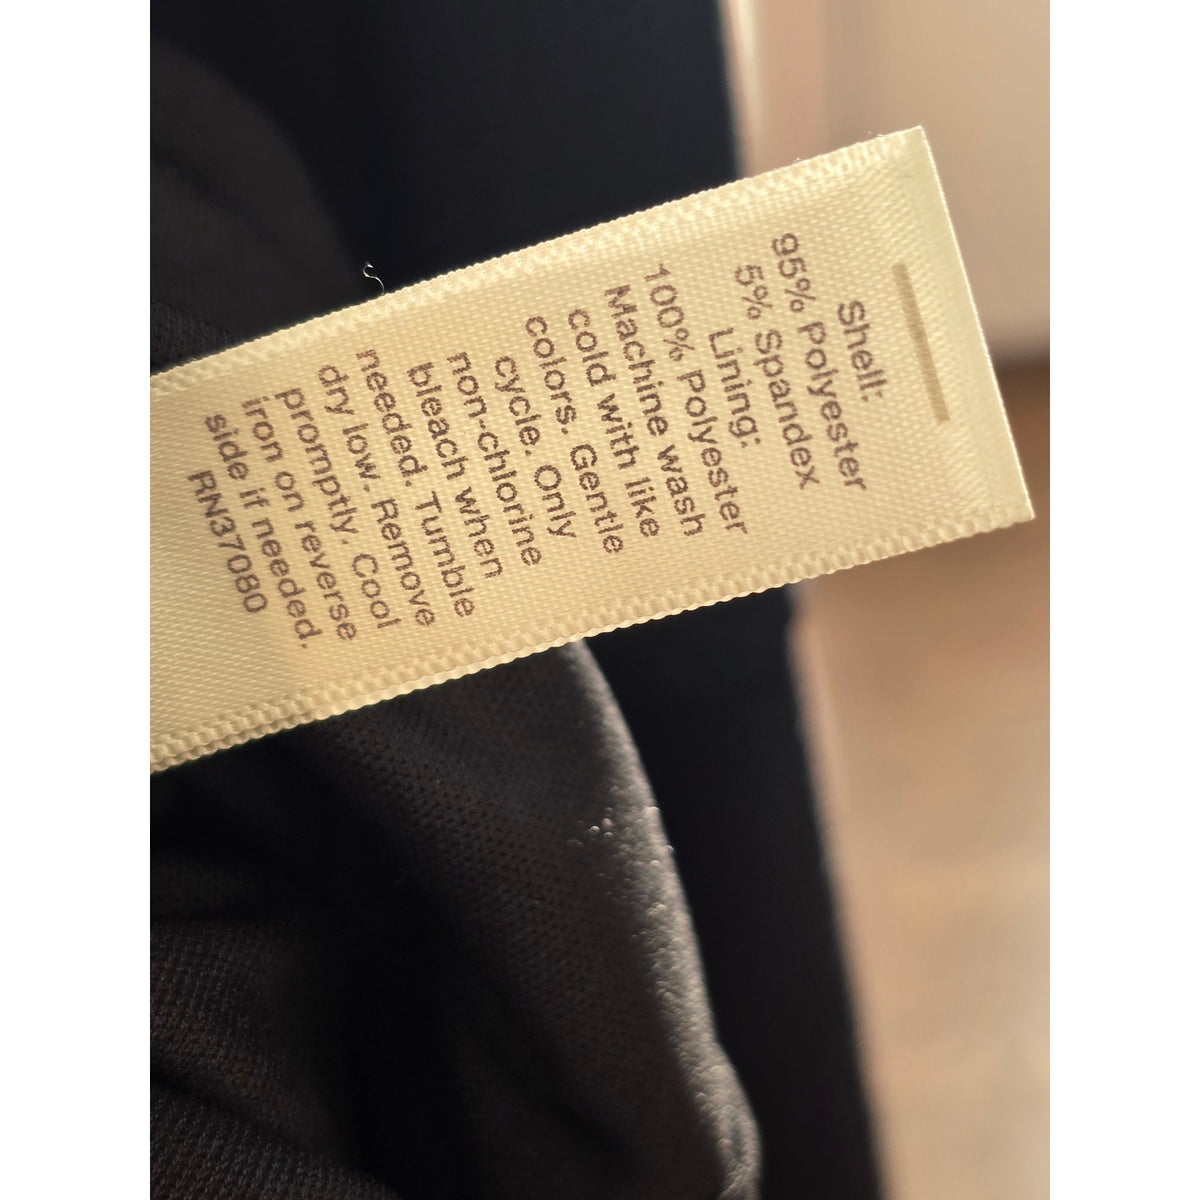 Shell:
95% Polyester
5% Spandex
Lining:
100% Polyester
Machine wash
cold with like
colors. Gentle
cycle. Only
non-chlorine
bleach when
needed. Tumble
dry low. Remove
promptly. Cool
iron on reverse
side if needed.
RN37080